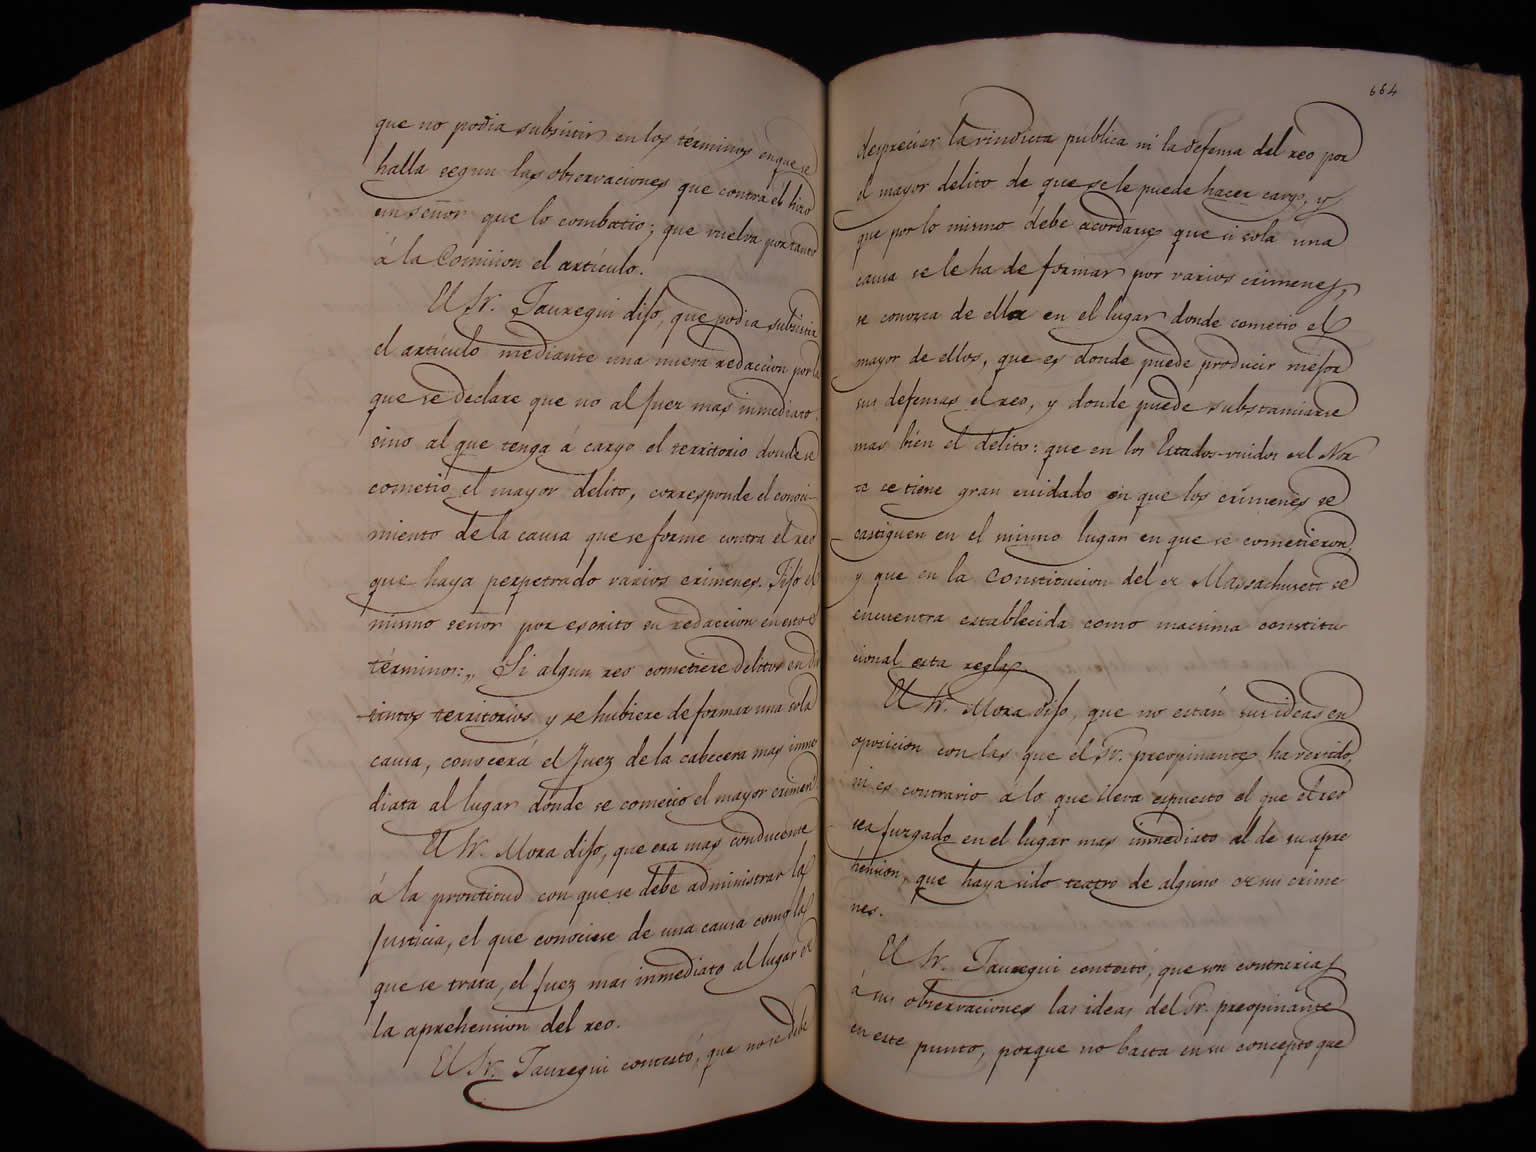 que no podia subsistir en los términos en que se
halla segun las observaciones que contra él hizo
un señor que lo combatio; que vuelva por tanto
á la Comision el artículo.
El Sr. Jauregui dijo, que podia subsistir
el artículo mediante una nueva redaccion por la
que se declare que no al juez mas inmediato,
sino al que tenga á cargo el territorio donde se
cometio el mayor delito, corresponde el conoci-
miento de la causa que se forme contra el reo
que haya perpetrado varios crimenes. Fijó el
mismo señor por escrito su redaccion en estos
términos: „ Si algun reo cometiere delitos en dis
tintos territorios y se hubiere de formar una sola
causa, conocerá el juez de la cabecera mas inme
diata al lugar donde se cometio el mayor crimen
El Sr. Mora dijo, que era mas conducente
á la prontitud con que se debe administrar la
justicia, el que conociese de una causa como la
que se trata, el juez mas inmediato al lugar de
la aprehension del reo.
El Sr. Jauregui contestó, que no se debe
664
despreciar la vindicta pública ni la defensa del reo por
el mayor delito de que se le puede hacer cargo, y
que por lo mismo debe acordarse que si sola una
causa se le ha de formar por varios crimenes,
se conozca de ella en el lugar donde cometio el
mayor de ellos, que es donde puede producir mejor
sus defensas el reo, y donde puede substanciarse
mas bien el delito: que en los Estados-unidos del Nor
te se tiene gran cuidado en que los crímenes se
castiguen en el mismo lugar en que se cometieron,
y que en la Constitucion del de Massachusett se
encuentra establecida como macsima constitu
cional esta regla.
El Sr. Mora dijo, que no están sus ideas en
oposicion con las que el Sr. preopinante ha vertido,
ni es contrario á lo que lleva espuesto el que el reo
sea juzgado en el lugar mas inmediato al de su apre
hension, que haya sido teatro de alguno de sus crime
nes.
El Sr. Jauregui contestó, que son contrarias
á sus observaciones las ideas del Sr. preopinante
en este punto, porque no basta en su concepto que